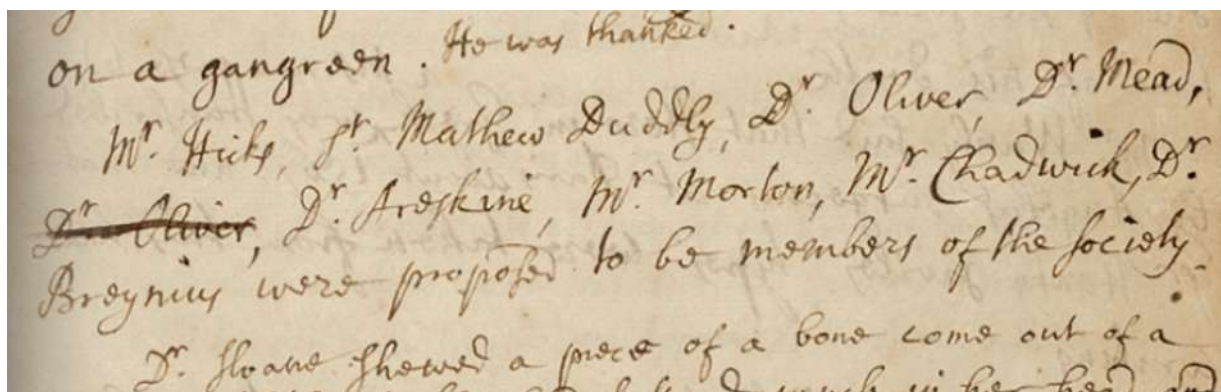 on a gangreen. He was thanked.
Mr. Hicks, Sr. Mathew Duddly, Dr. Oliver, Dr. Mead,
Dr Oliver, Dr. Areskine, Mr. Morton, Mr. Chadwick, Dr.
Breynius were proposed to be members of the society.
Dr. Sloane shewed a piece of a bone come out of a